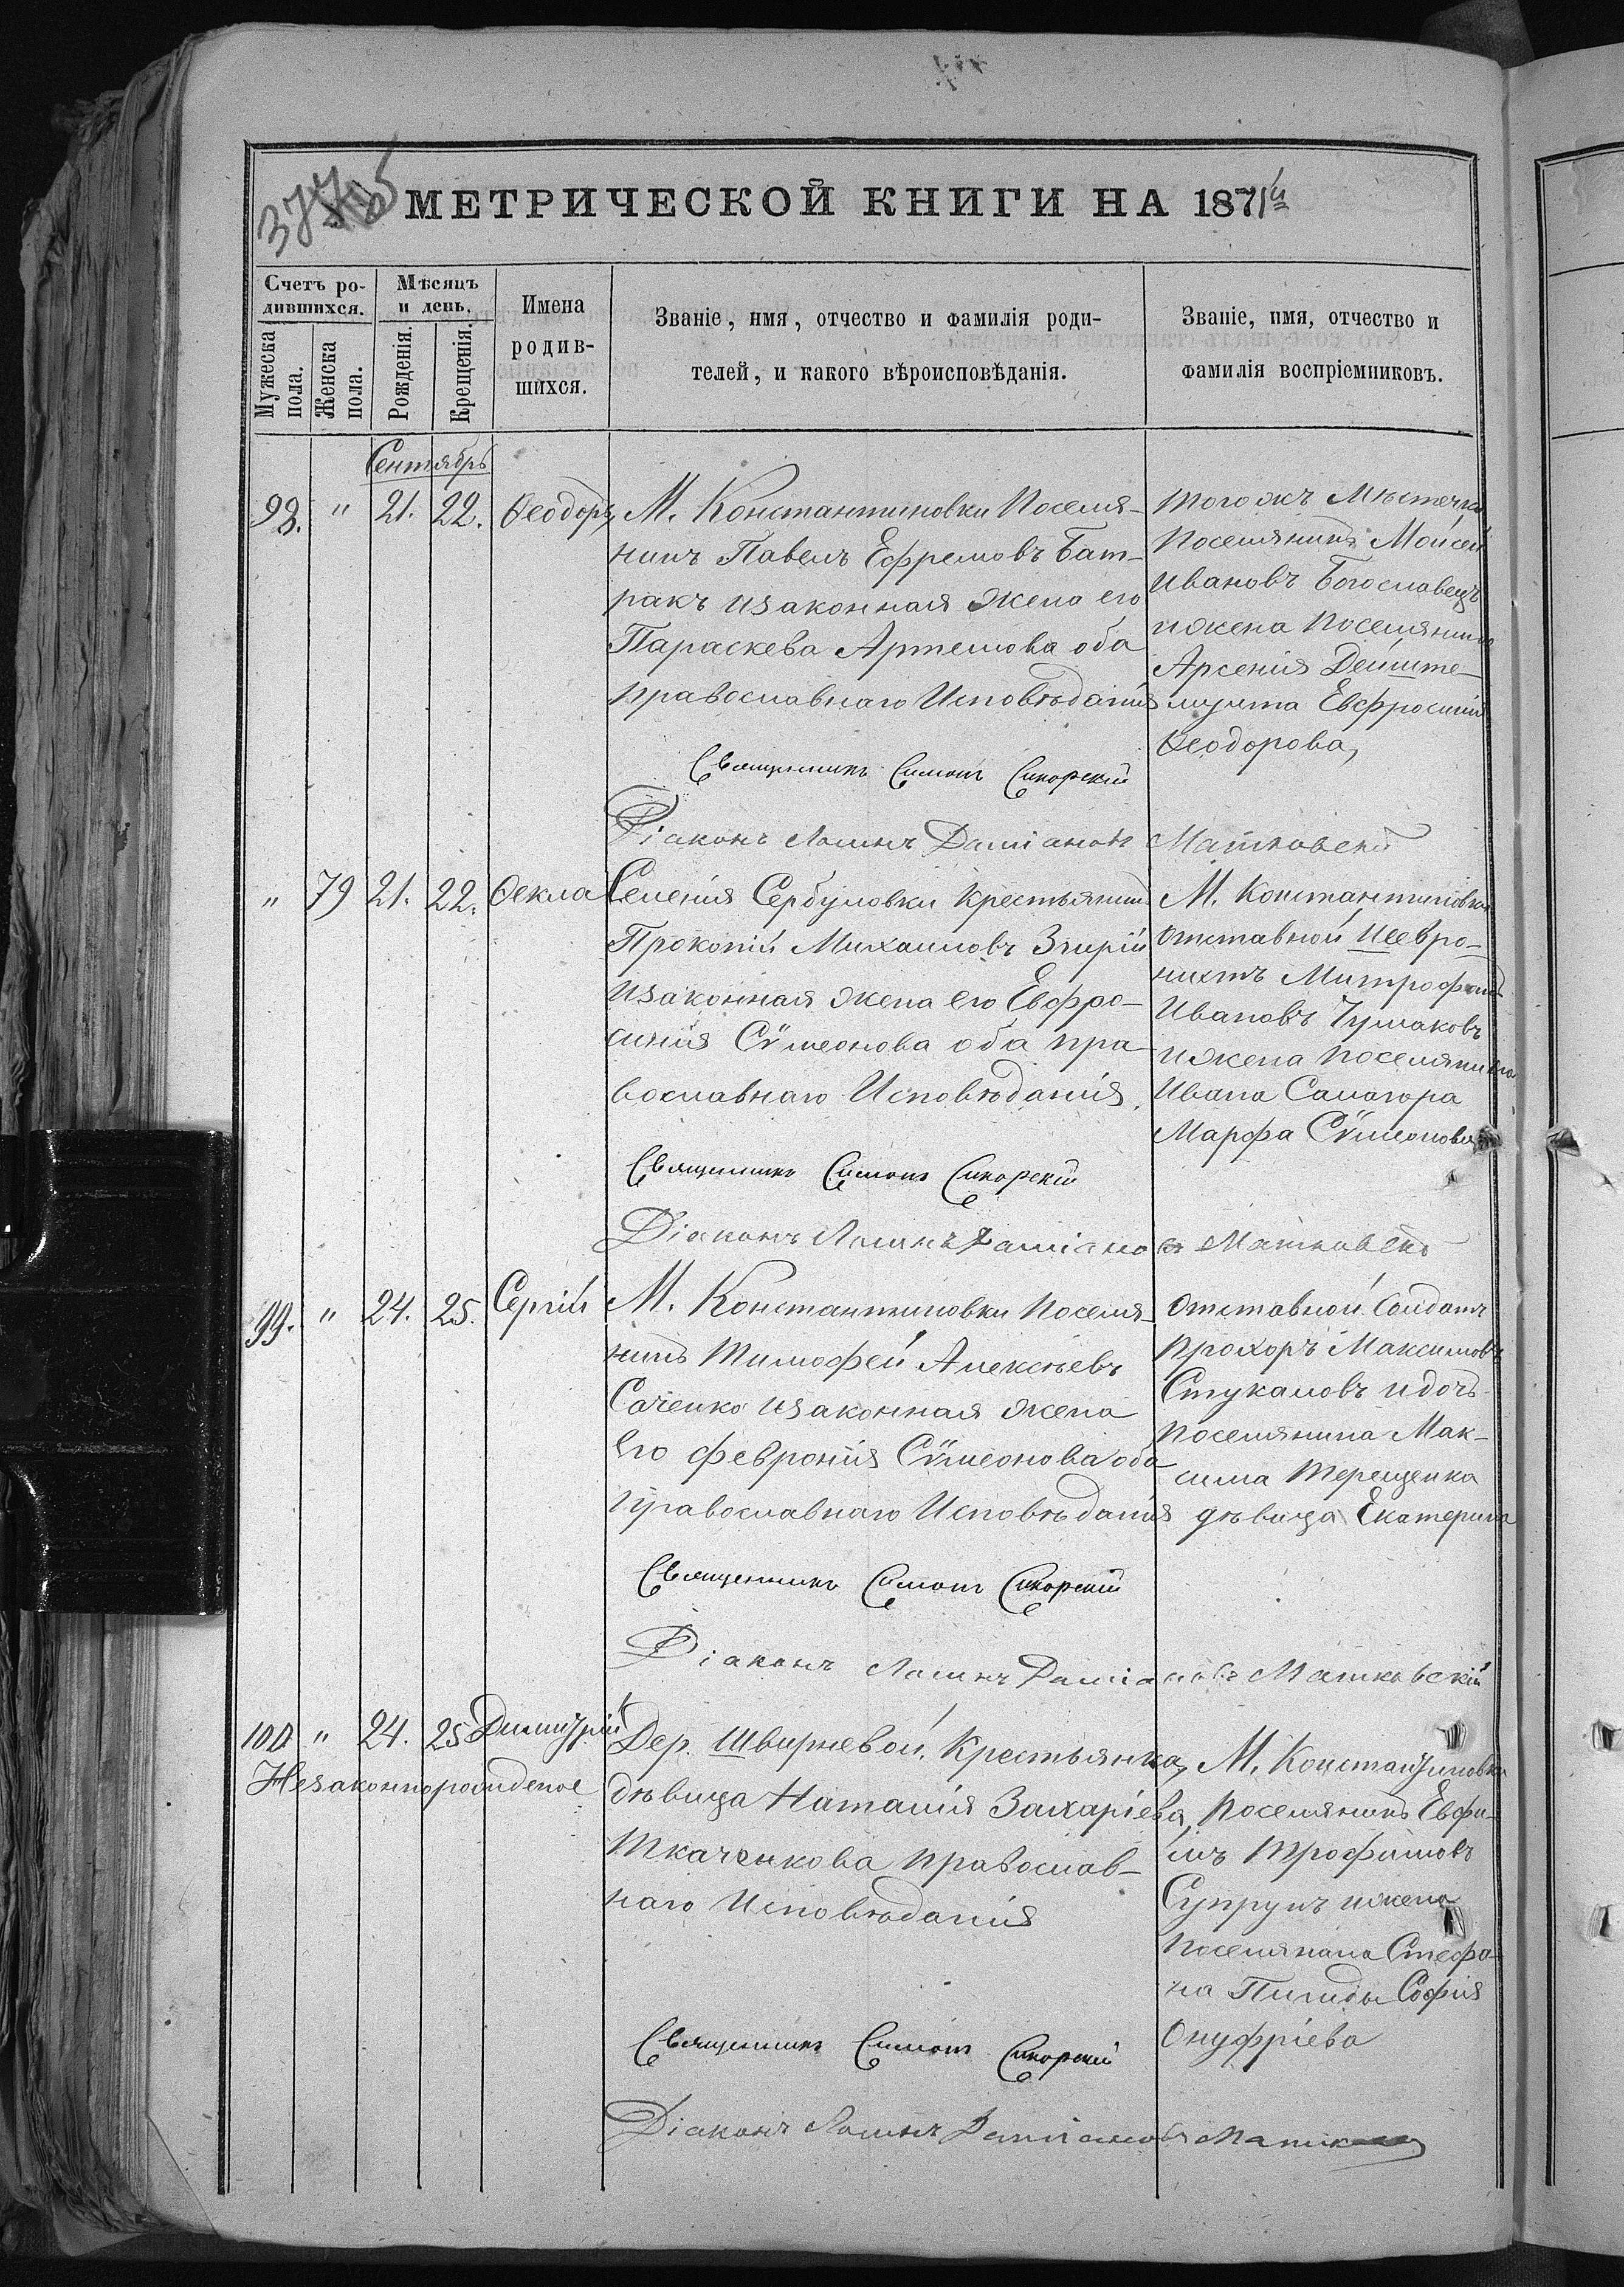 МЕТРИЧЕСКОЙ КНИГИ НА 1871й
Счетъ ро-
дившихся.
Мужеска
пола.
Женска
пола.
Мѣсяцъ
и день.
Рожденія.
Крещенія.
Имена
родив-
шихся.
Званіе, имя, отчество и фамилія роди-
телей, и какого вѣроисповѣданія.
Званіе, имя, отчество и
фамилія воспріемниковъ.
Сентябрь
98. " 21. 22. Ѳеодоръ,
М. Константиновки Поселя-
нинъ Павелъ Ефремовъ Бат-
ракъ изаконная жена его
Параскева Артемова оба
православнаго Исповѣданія
Священникъ Симонъ Сикорскій
Діаконъ Даміановъ Матковскій
тогожъ Мѣстечка
Поселянинъ Моисей
Ивановъ Богославецъ
ижена Поселянина
Арсенія
Евфросинія
Ѳеодорова,
" 79 21. 22. Ѳекла
Селенія Сербуловки Крестьянинъ
Прокопій Михаиловъ Згирій
изаконная жена его Евфро-
синія Сѵмеонова оба пра-
вославнаго Исповѣданія.
Священникъ Симонъ Сикорскій
Діаконъ Даміановъ Матковскій
М. Константиновки
отставной
Митрофанъ
Ивановъ Чумаковъ
ижена поселянина
Ивана Самогора
Марфа Сѵмеонова
99. " 24. 25. Сергій
М. Константиновки Поселя-
нинъ Тимофей Алексѣевъ
Саченко изаконная жена
его Февронія Сѵмеонова оба
Православнаго Исповѣданія
Священникъ Симонъ Сикорскій
Діаконъ Даміановъ Матковскій
Отставной Солдатъ
Прохоръ Максимовъ
Стукаловъ идочь
Поселянина Мак-
сима Терещенка
дѣвица Екатерина
100. " 24. 25 Димитрій
Незаконнорожденое
Дер. Швыревой, Крестьянка,
дѣвица Наталія Захаріева,
Ткаченкова Православ-
наго Исповѣданія
Священникъ Симонъ Сикорскій
Діаконъ Даміановъ
М. Константиновки
Поселянинъ Евфи-
мъ Трофимовъ
Супрунъ ижена
Поселянина Стефа-
на София
Онуфріева